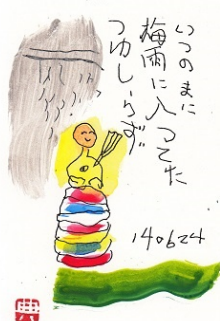 いつのまに
梅雨に入つてた
つゆしらず
140624
典